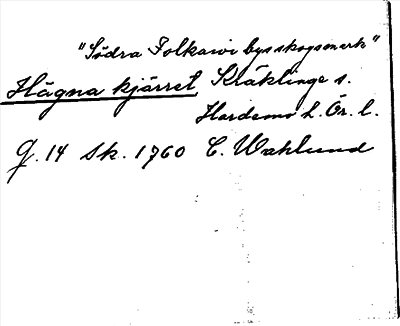 "Södra Folkavi bysskogsmark"
Hägna kjärret, Kräklinge s.
Hardemo h. Ör. l.
G. 14 Sk. 1760 C. Wahlund